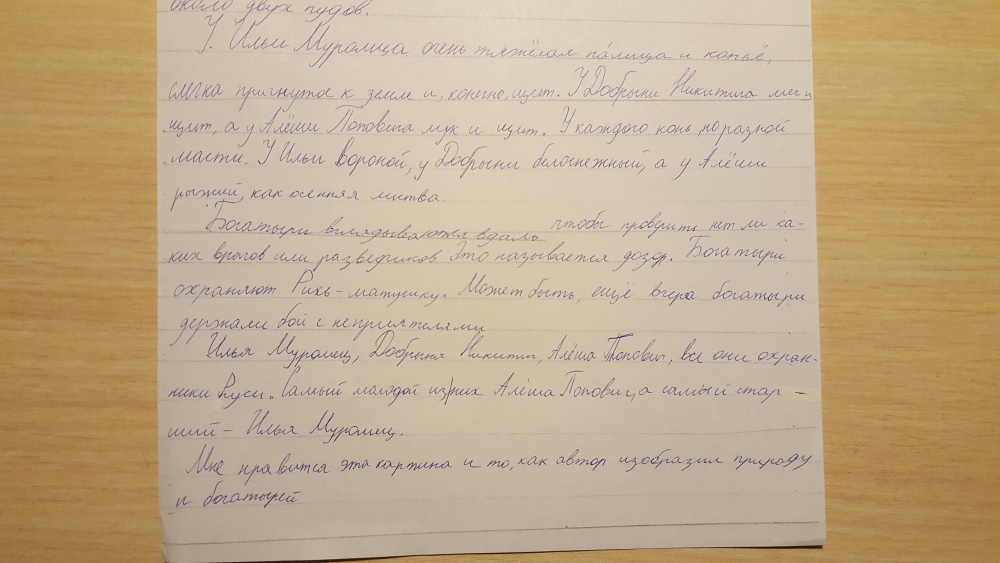 около двух пудов.
У Ильи Муромца очень тяжёлая палица и копьё,
слегка пригнутое к земле и, конечно, щит. У Добрыни Никитича меч и
щит, а у Алёши Поповича лук и щит. У каждого конь, но разной
масти. У Ильи вороной, у Добрыни белоснежный, а у Алёши
рыжий, как осенняя листва.
Богатыри вглядываются вдаль чтобы проверить нет ли ка-
ких врагов или разведчиков. Это называется дозор. Богатыри
охраняют Русь-матушку. Может быть, ещё вчера богатыри
держали бой с неприятелями.
Илья Муромец, Добрыня Никитич, Алёша Попович, все они охран-
ники Руси. Самый молодой из них Алёша Попович, а самый стар-
ший - Илья Муромец.
Мне нравится эта картина и то, как автор изобразил природу
и богатырей